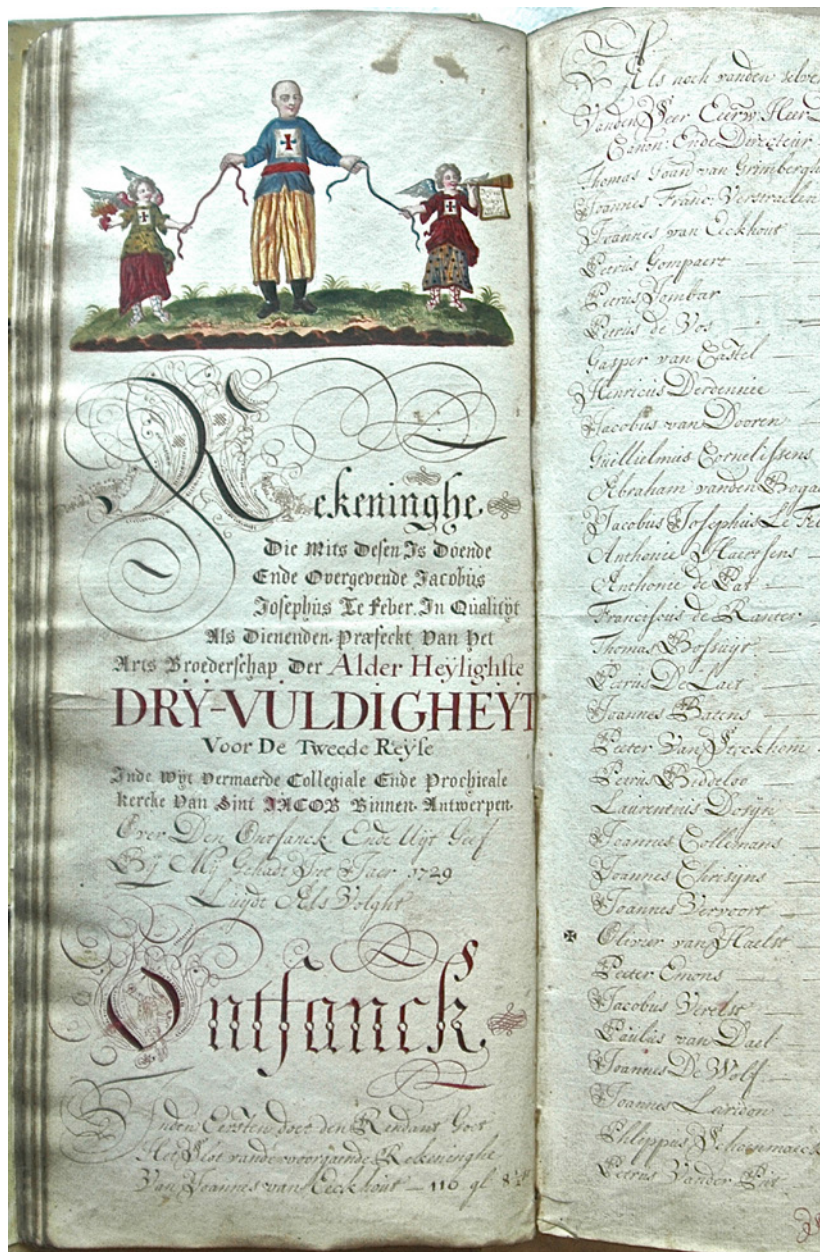 Rekeninghe.
Die Mits Desen Is Doende
Ende Overgevende Jacobus
Josephus Le Feber. In Qualityt
Als Dienenden Præfeckt Van Het
Arts Broederschap Der Alder Heylighste
DRY-VULDIGHEYT
Voor De Tweede Reyse
Inde Wyt Vermaerde Collegiale Ende Prochieale
Kercke Van Sint JACOB Binnen Antwerpen.
Over Den Ontfanck Ende Uyt Geef
By My Gehadt Het Jaer 1729
Luydt Als Volght
Ontfanck
Inden Eersten doet den Rendant Goet
Het Slot vande voorgaende Rekeninghe
Van Joannes van Eeckhout - 116 gl
Als noch vanden selven
Vanden Heer Eerw: Heer
Canon: Ende Directeur
Thomas van Grimbergh
Joannes Franc: Verstraelen
Joannes van Eeckhout
Petrus Gompaert
Petrus Jombar
Petrus de Vos
Gasper van Castel
Henricus Derdennee
Jacobus van Dooren
Guillielmus Cornelissens
Abraham vanden Boga
Jacobus Josephus Le Fe
Anthonie Haeresens
Anthonie de Bat
Franciscus de Ranter
Thomas Bossuyt
Petrus De Laet
Joannes Batens
Peeter Van Streckhem
Petrus Biddeloo
Laurentius Dosyn
Joannes Collemans
Joannes Chrisyns
Joannes Vervoort
✠ Olivier van Haelst
Peeter Emons
Jacobus Verelst
Paulus van Dael
Joannes De Wolf
Joannes Leiridon
Phleppus Schoenmaeck
Petrus Vander